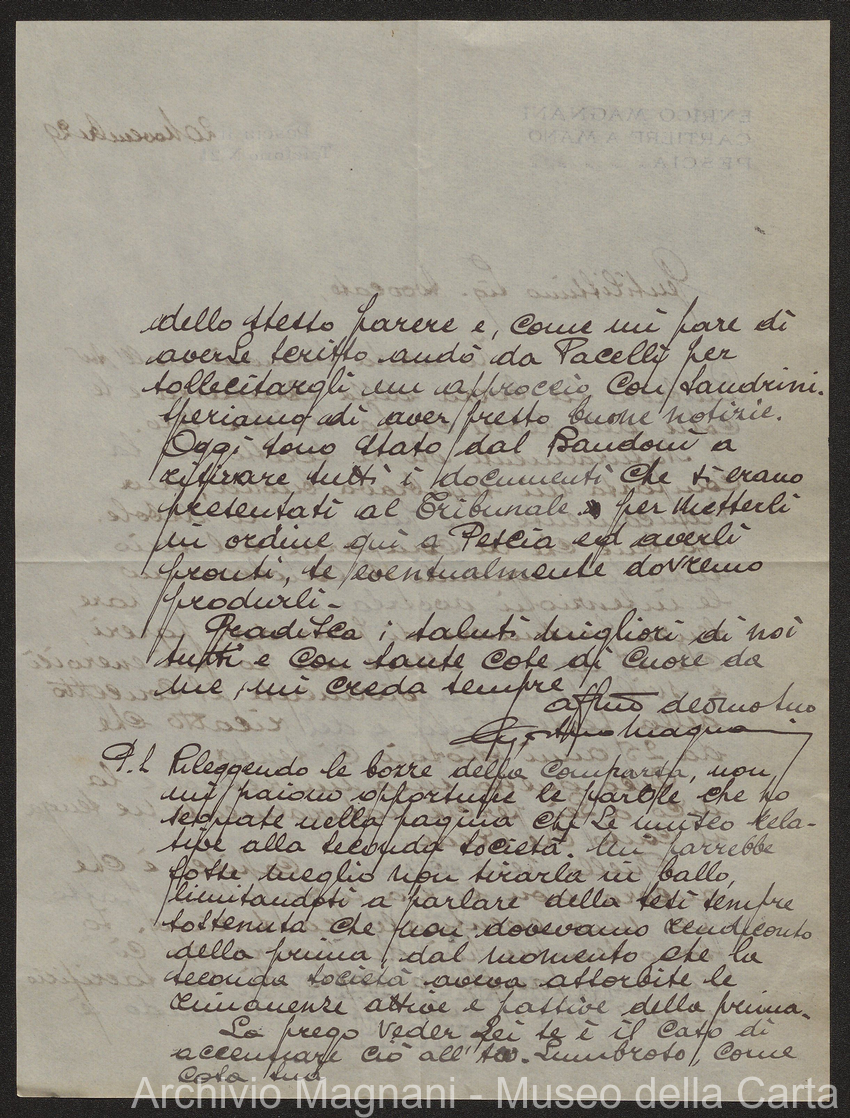 dello stesso parere e, come mi pare di
averLe scritto andò da Pacelli per
sollecitargli un approccio con Sandrini.
Speriamo di aver presto buone notizie.
Oggi sono stato dal Bandoni a
ritirare tutti i documenti che si erano
presentati al Tribunale per metterli
in ordine qui a Pescia ed averli
pronti, se eventualmente dovremo
produrli -
Gradisca i saluti migliori di noi
tutti e con tante cose di cuore da
me, mi creda sempre
affmo devmo suo
Magnani
P.S. Rileggendo le bozze della Comparsa, non
mi paiono opportune le parole che ho
segnate nella pagina che Le unisco rela-
tive alla seconda società. Mi parrebbe
fosse meglio non tirarla in ballo,
limitandosi a parlare della tesi sempre
sostenuta che non dovevamo rendiconto
della prima, dal momento che la
seconda società aveva assorbite le
rimanenze attive e passive della prima.
La prego veder Lei se è il caso di
accennare ciò all'Avv. Lumbroso, come
cosa sua
Archivio Magnani - Museo della Carta